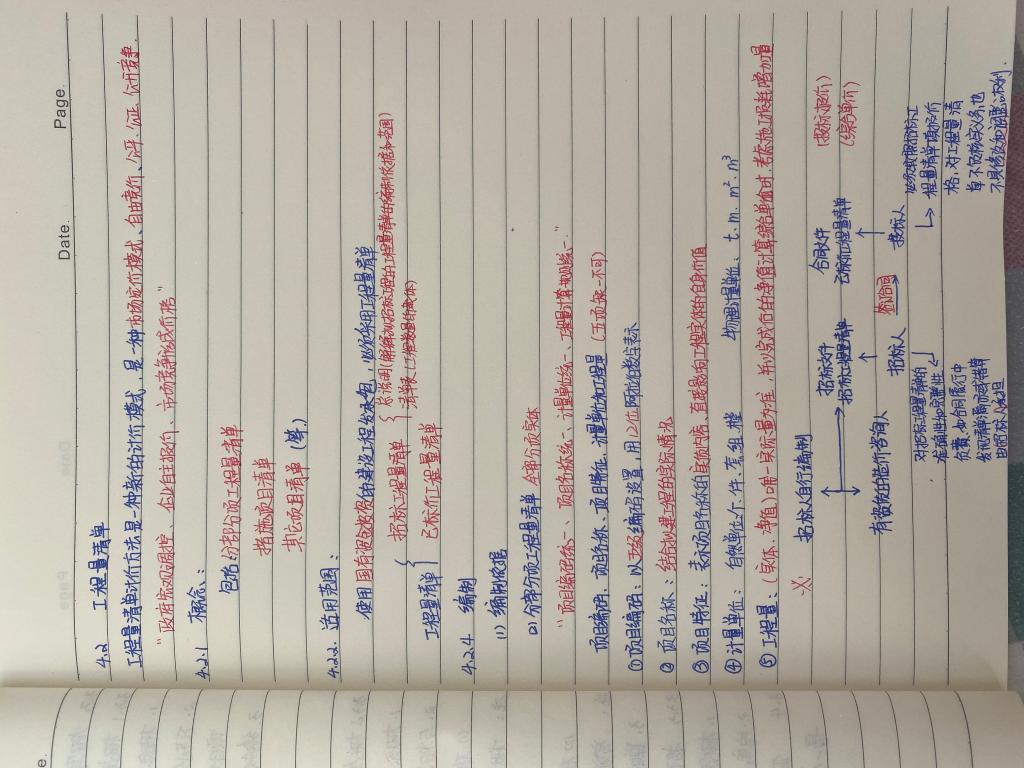 Date. Page.
4.2 工程量清单
工程量清单计价方法是一种新的计价模式，是一种市场定价模式、自由竞价、公平、公正、公开竞争.
“政府宏观调控、企业自主报价、市场竞争形成价格”
4.2.1 概念：
包括分部分项工程量清单
措施项目清单
其它项目清单（等）
4.2.2 适用范围：
使用国有资金投资的建设工程发承包，必须采用工程量清单
工程量清单 { 招标工程量清单 { 总说明（用于说明招标工程的工程量清单的编制依据和范围）
清单表（工程数量的载体）
已标价工程量清单
4.2.4 编制
(1) 编制依据
(2) 分部分项工程量清单 全部分项实体
“项目编码统一、项目名称统一、计量单位统一、工程量计算规则统一.”
项目编码、项目名称、项目特征、计量单位和工程量（五项缺一不可）
①项目编码：以五级编码设置，用12位阿拉伯数字表示
②项目名称：结合拟建工程的实际情况
③项目特征：表示项目名称的实质内容、直接影响工程实体的自身价值
④计量单位：自然单位：个、件、套、组、樘 物理计量单位、t. m. m². m³
⑤工程量：（实体、净值）唯一实际量为准，并以完成的净值计算综合单价时，考虑施工损耗增加量
※ 招标人自行编制 招标文件 合同文件 (投标报价)
招标工程量清单 已标价工程量清单 (综合单价)
有资质的造价咨询人 招标人 签合同 投标人
对招标工程量清单的
准确性和完整性
负责，如合同履行中
发现清单漏项或错算
由招标人承担
必须按照招标
工程量清单填报价
格，对工程量清
单不负核实义务，也
不具修改和调整的权利.